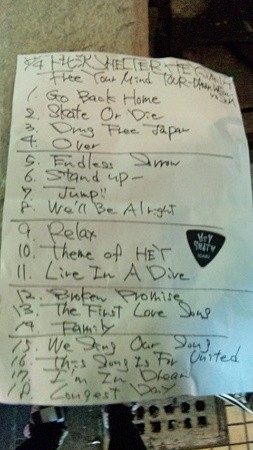 下北沢 SHELTER
Free Your Mind TOUR
1. Go Back Home
2. Skate Or Die
3. Drug Free Japan
4. Over
5. Endless Sorrow
6. Stand up
7. Jump!!
8. We'll Be Alright
9. Relax
10. Theme of HEY
11. Live In A Dive
12. Broken Promise
13. The First Love Song
14. Family
15. We Sing Our Song
16. This Song Is For United
17. I'm In Dream
18. Longest Day
HEY
SMITH